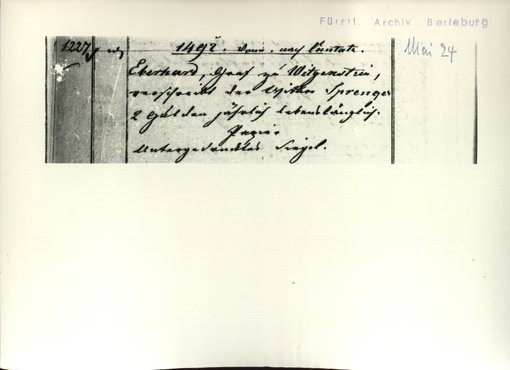 Fürstl. Archiv Berleburg
1227 1492. Donn. nach Cantate. Mai 24
Eberhard, Graf zu Witgenstein,
verschreibt der Witwe Sprenger
2 Gulden jährlich lebenslänglich.
Papier
Untergedrucktes Siegel.